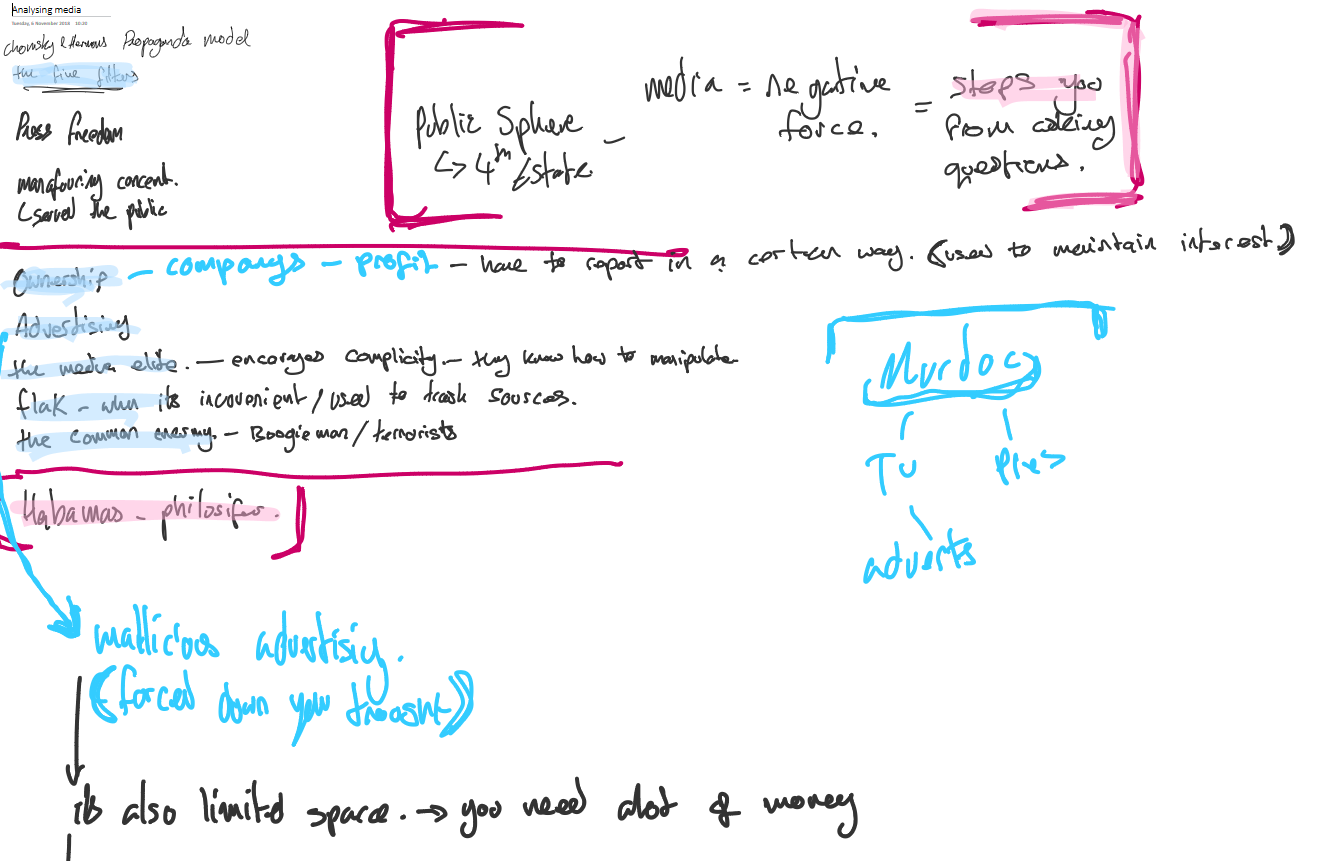 Analysing media
Tuesday, 6 November 2018 10:20
Chomsky & Hermans Propaganda model
the five filters
Press freedom
concent.
(served the public
Public Sphere –
↳ 4th Estate
media = negative
force.
= stops you
from asking
questions.
Ownership – companys – profit – have to report in a certain way. (used to maintain interest)
Advertising
the media elite. – encorages complicity. – they know how to manipulate
flak – when its incovenient / used to trash sources.
the common enemy. – Boogieman / terrorists
Murdoc
TV
Pres
adverts
Habamas – philosifer.
mallicious advertising.
(forced down your throaght)
its also limited space. → you need alot of money